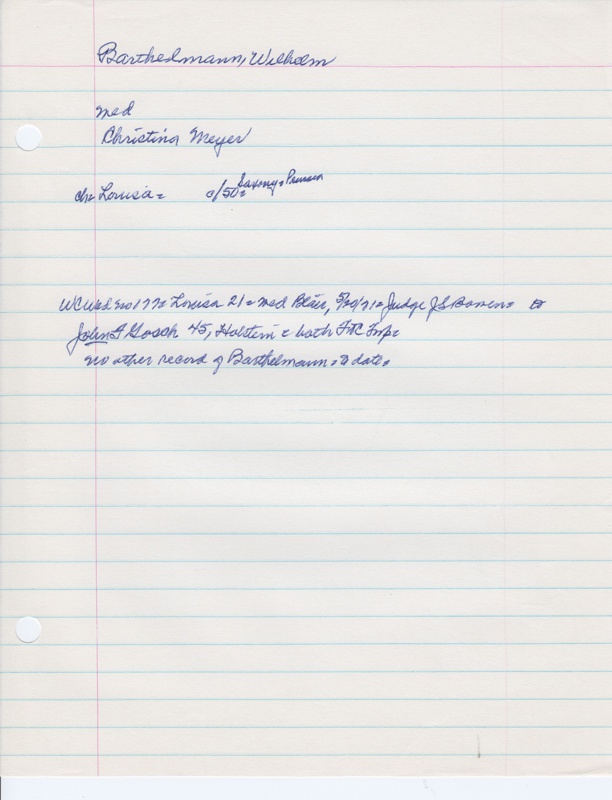 Barthelmann, Wilhelm
med
Christina Meyer
ch= Louisa= c/50= Saxony= Prussia
WC Wed no 177= Louisa 21= med Blair, 5/20/71= Judge JS Bowen= to
John F Gosch 45, Holstein= both FtC Imp=
no other record of Barthelmann= to date=